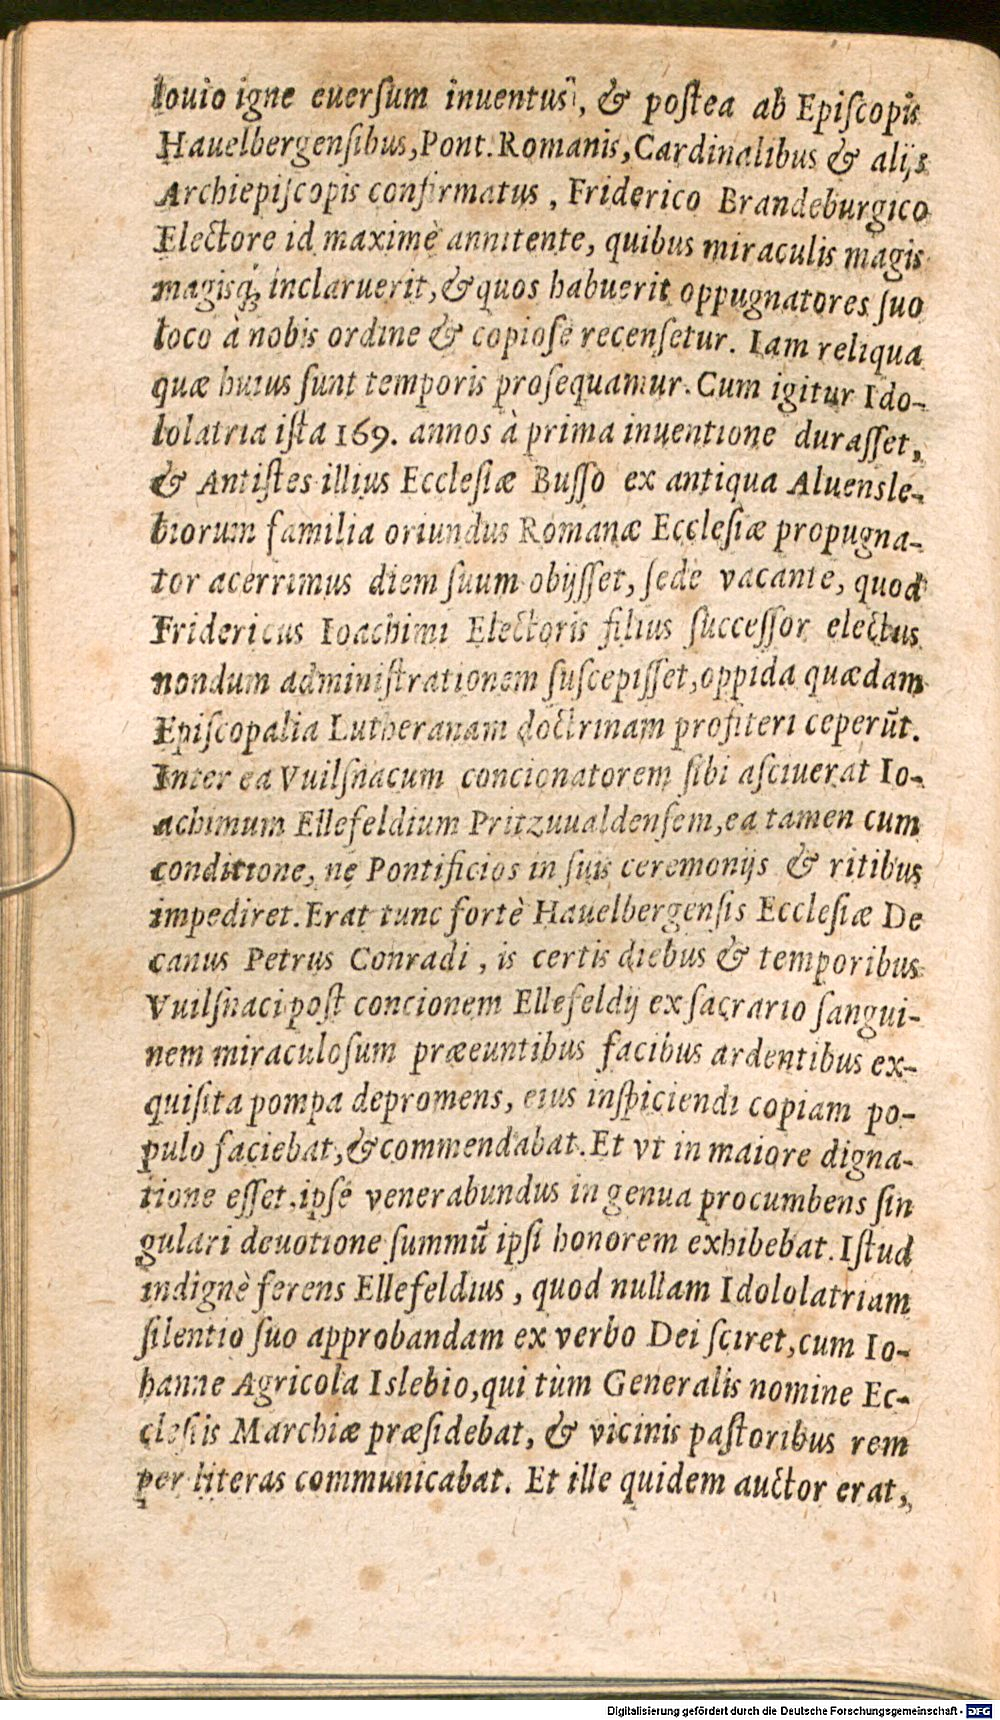 louio igne euerſum inuentus, & poſtea ab Epiſcopis
Hauelbergenſibus, Pont. Romanis, Cardinalibus & alijs
Archiepiſcopis confirmatus, Friderico Brandeburgico
Electore id maximè annitente, quibus miraculis magis
magisq́; inclaruerit, & quos habuerit oppugnatores ſuo
loco à nobis ordine & copioſè recenſetur. Iam reliqua
quæ huius ſunt temporis proſequamur. Cum igitur Ido-
lolatria iſta 169. annos à prima inuentione duraſſet,
& Antiſtes illius Eccleſiæ Buſſo ex antiqua Aluensle-
biorum familia oriundus Romanæ Eccleſiæ propugna-
tor acerrimus diem ſuum obijſſet, ſede vacante, quod
Fridericus Ioachimi Electoris filius ſucceſſor electus
nondum adminiſtrationem ſuſcepiſſet, oppida quædam
Epiſcopalia Lutheranam doctrinam profiteri ceperūt.
Inter ea Vuilſnacum concionatorem ſibi aſciuerat Io-
achimum Ellefeldium Pritzuualdenſem, ea tamen cum
conditione, ne Pontificios in ſuis ceremonijs & ritibus
impediret. Erat tunc fortè Hauelbergenſis Eccleſiæ De
canus Petrus Conradi, is certis diebus & temporibus
Vuilſnaci poſt concionem Ellefeldij ex ſacrario ſangui-
nem miraculoſum præeuntibus facibus ardentibus ex-
quiſita pompa depromens, eius inſpiciendi copiam po-
pulo faciebat, & commendabat. Et vt in maiore digna-
tione eſſet, ipſe venerabundus in genua procumbens ſin
gulari deuotione ſummū ipſi honorem exhibebat. Iſtud
indignè ferens Ellefeldius, quod nullam Idololatriam
ſilentio ſuo approbandam ex verbo Dei ſciret, cum Io-
hanne Agricola Islebio, qui tùm Generalis nomine Ec-
cleſiis Marchiæ præſidebat, & vicinis paſtoribus rem
per literas communicabat. Et ille quidem auctor erat,
Digitalisierung gefördert durch die Deutsche Forschungsgemeinschaft - DFG